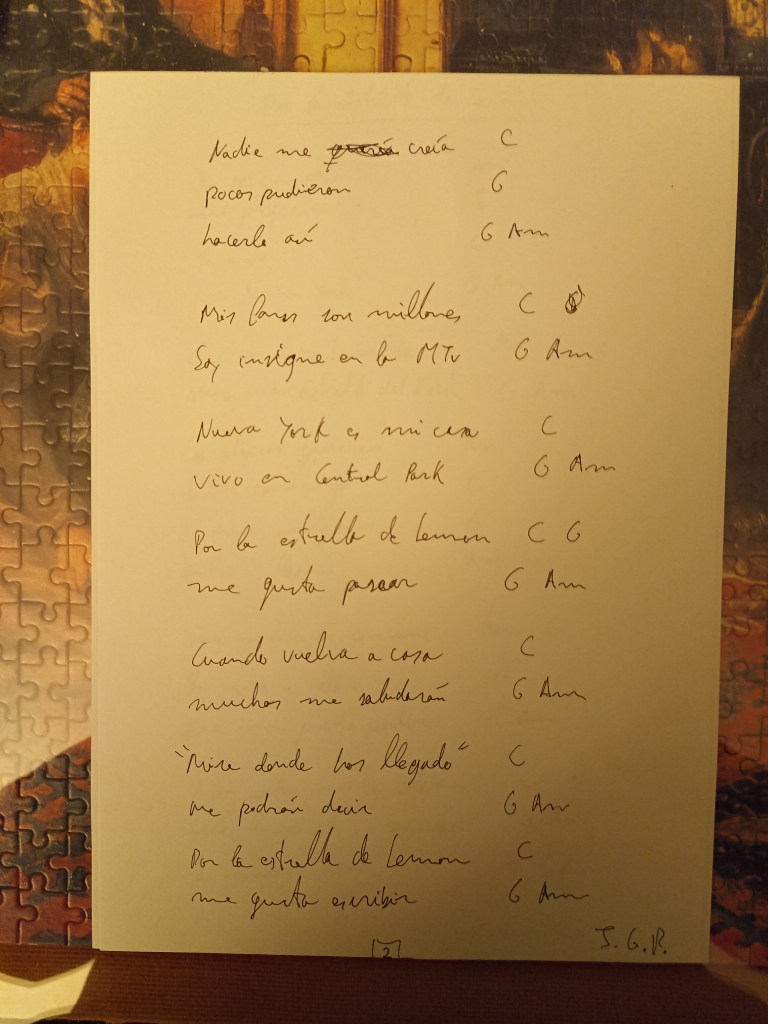 Nadie me creía C
pocos pudieron G
hacerlo así G Am
Mis fans son millones C
Soy insigne en la MTV G Am
Nueva York es mi casa C
vivo en Central Park G Am
Por la estrella de Lennon C G
me gusta pasear G Am
Cuando vuelva a casa C
muchos me saludarán G Am
"Mira donde has llegado" C
me podrán decir G Am
Por la estrella de Lennon C
me gusta escribir G Am
J. G. P.
2